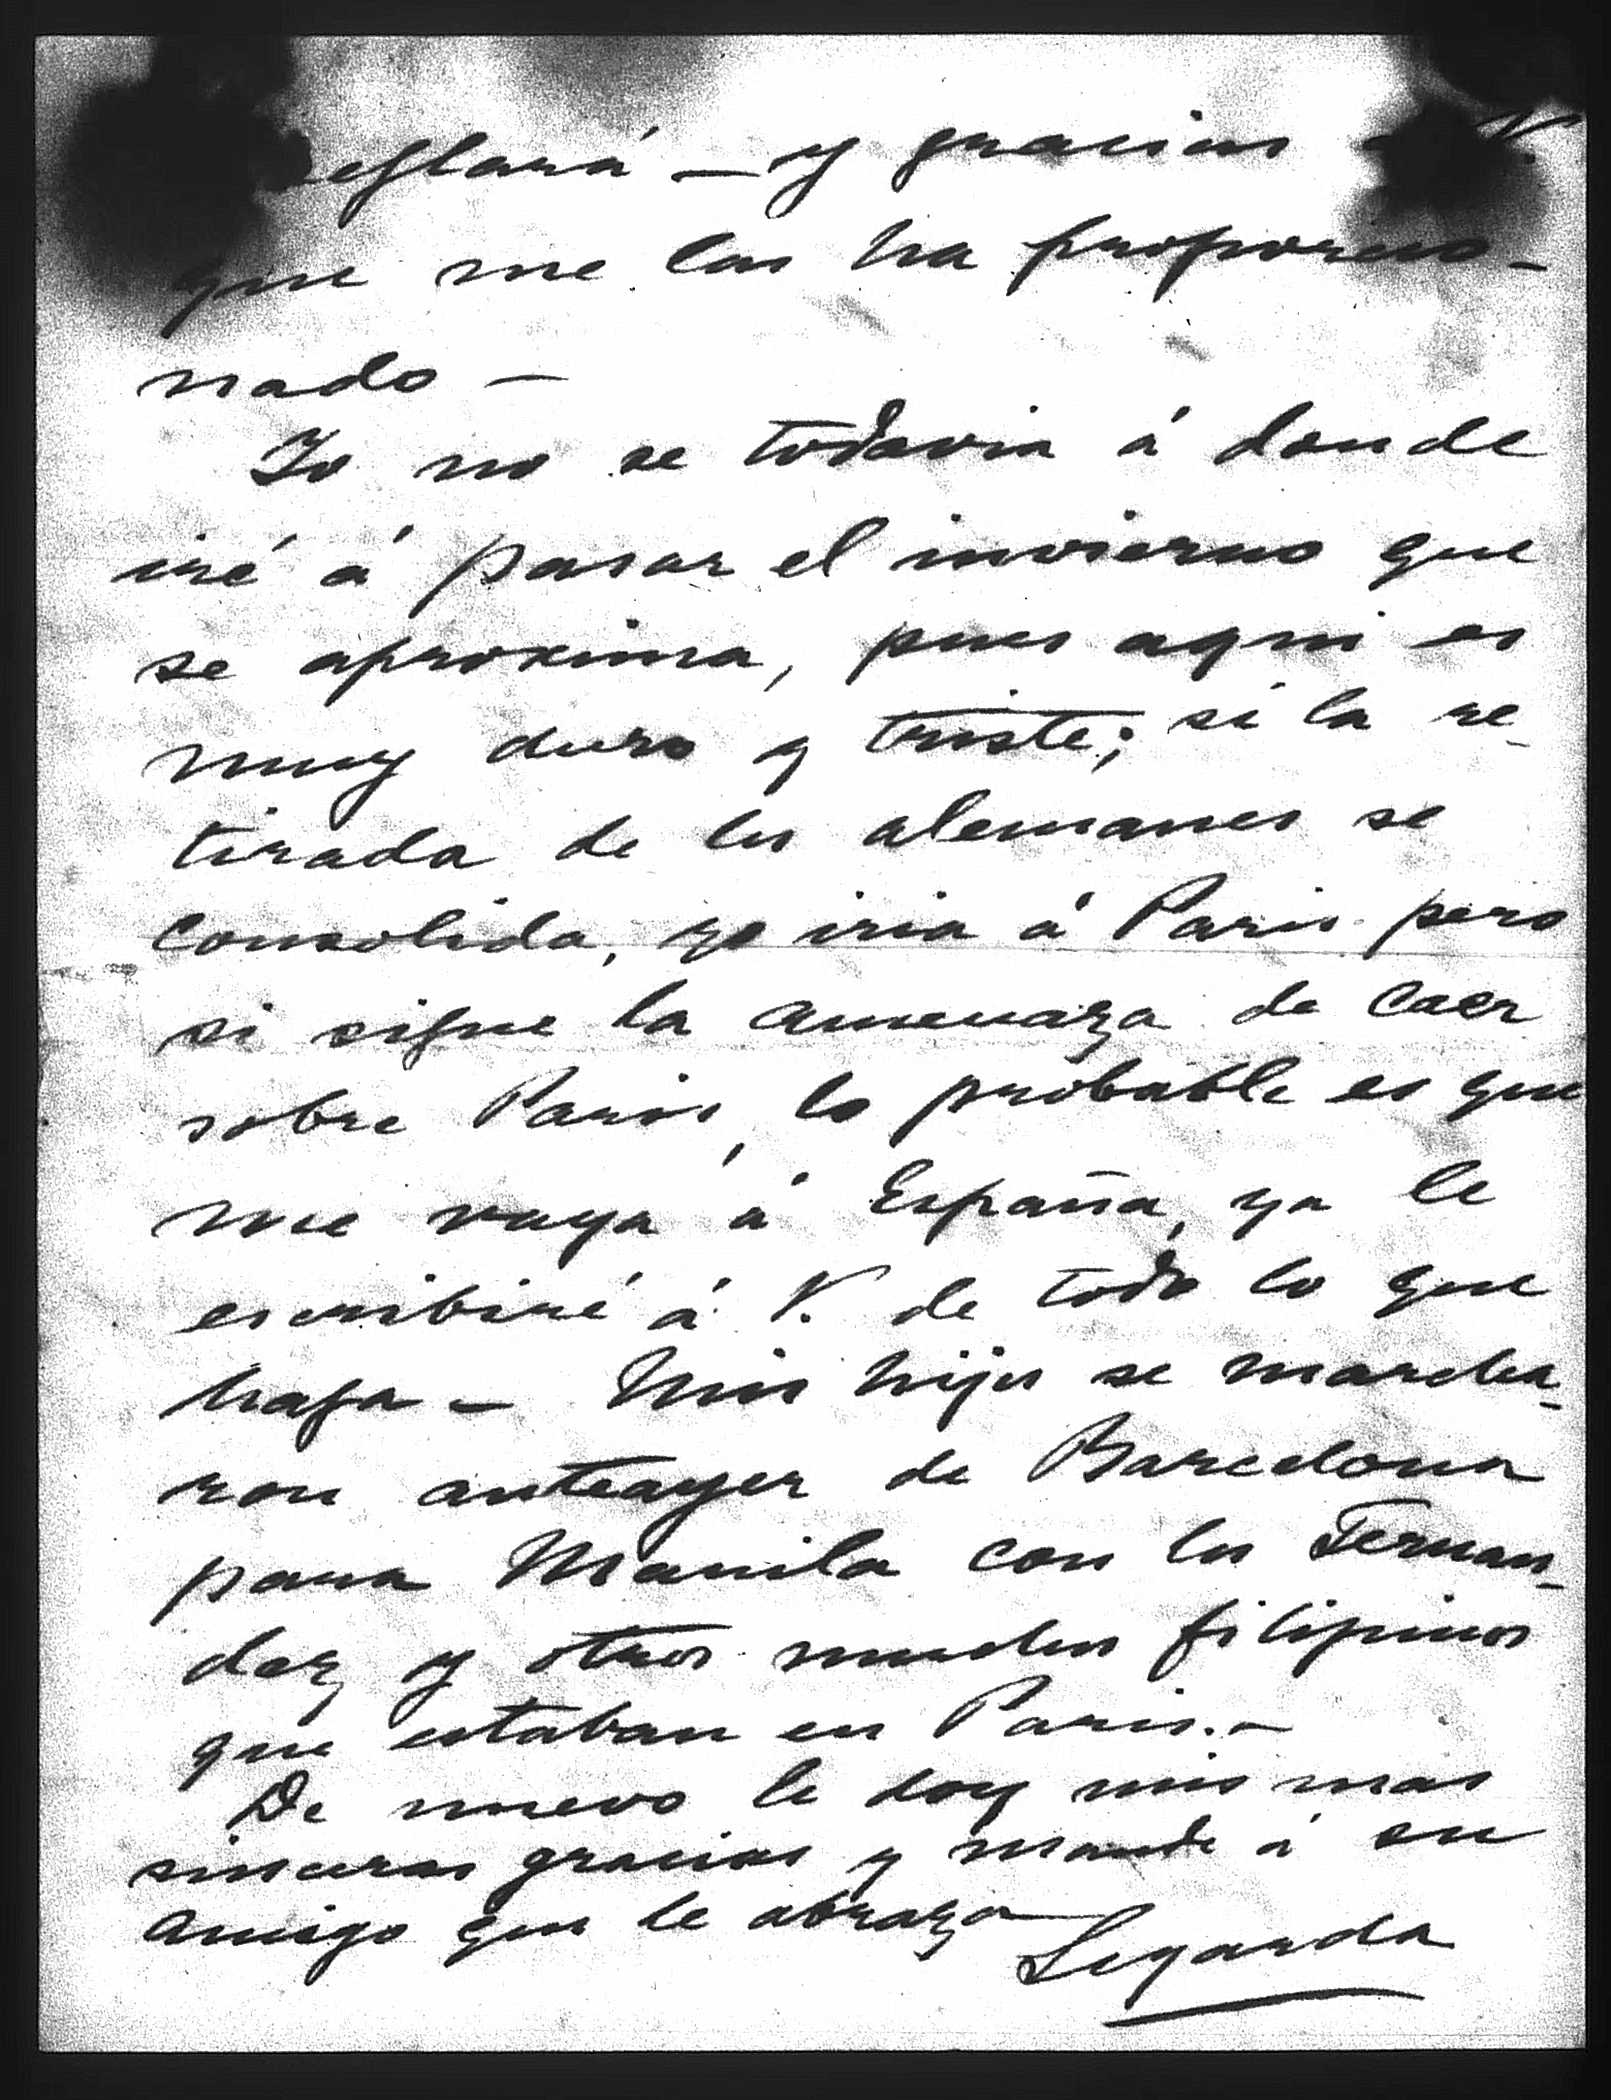 reglará – y gracias á V.
que me las ha proporcio-
nado –
Yo no se todavia á donde
iré á pasar el invierno que
se aproxima, pues aqui es
muy duro y triste; si la re-
tirada de los alemanes se
consolida, yo iria á Paris pero
si sigue la amenaza de caer
sobre Paris, lo probable es que
me vaya á España, ya le
escribiré á V. de todo lo que
haga – Mis hijos se marcha-
ron anteayer de Barcelona
para Manila con los Fernan-
dez y otros muchos filipinos
que estaban en Paris. –
De nuevo le doy mis mas
sinceras gracias y mande á su
amigo que le abraza
Legarda